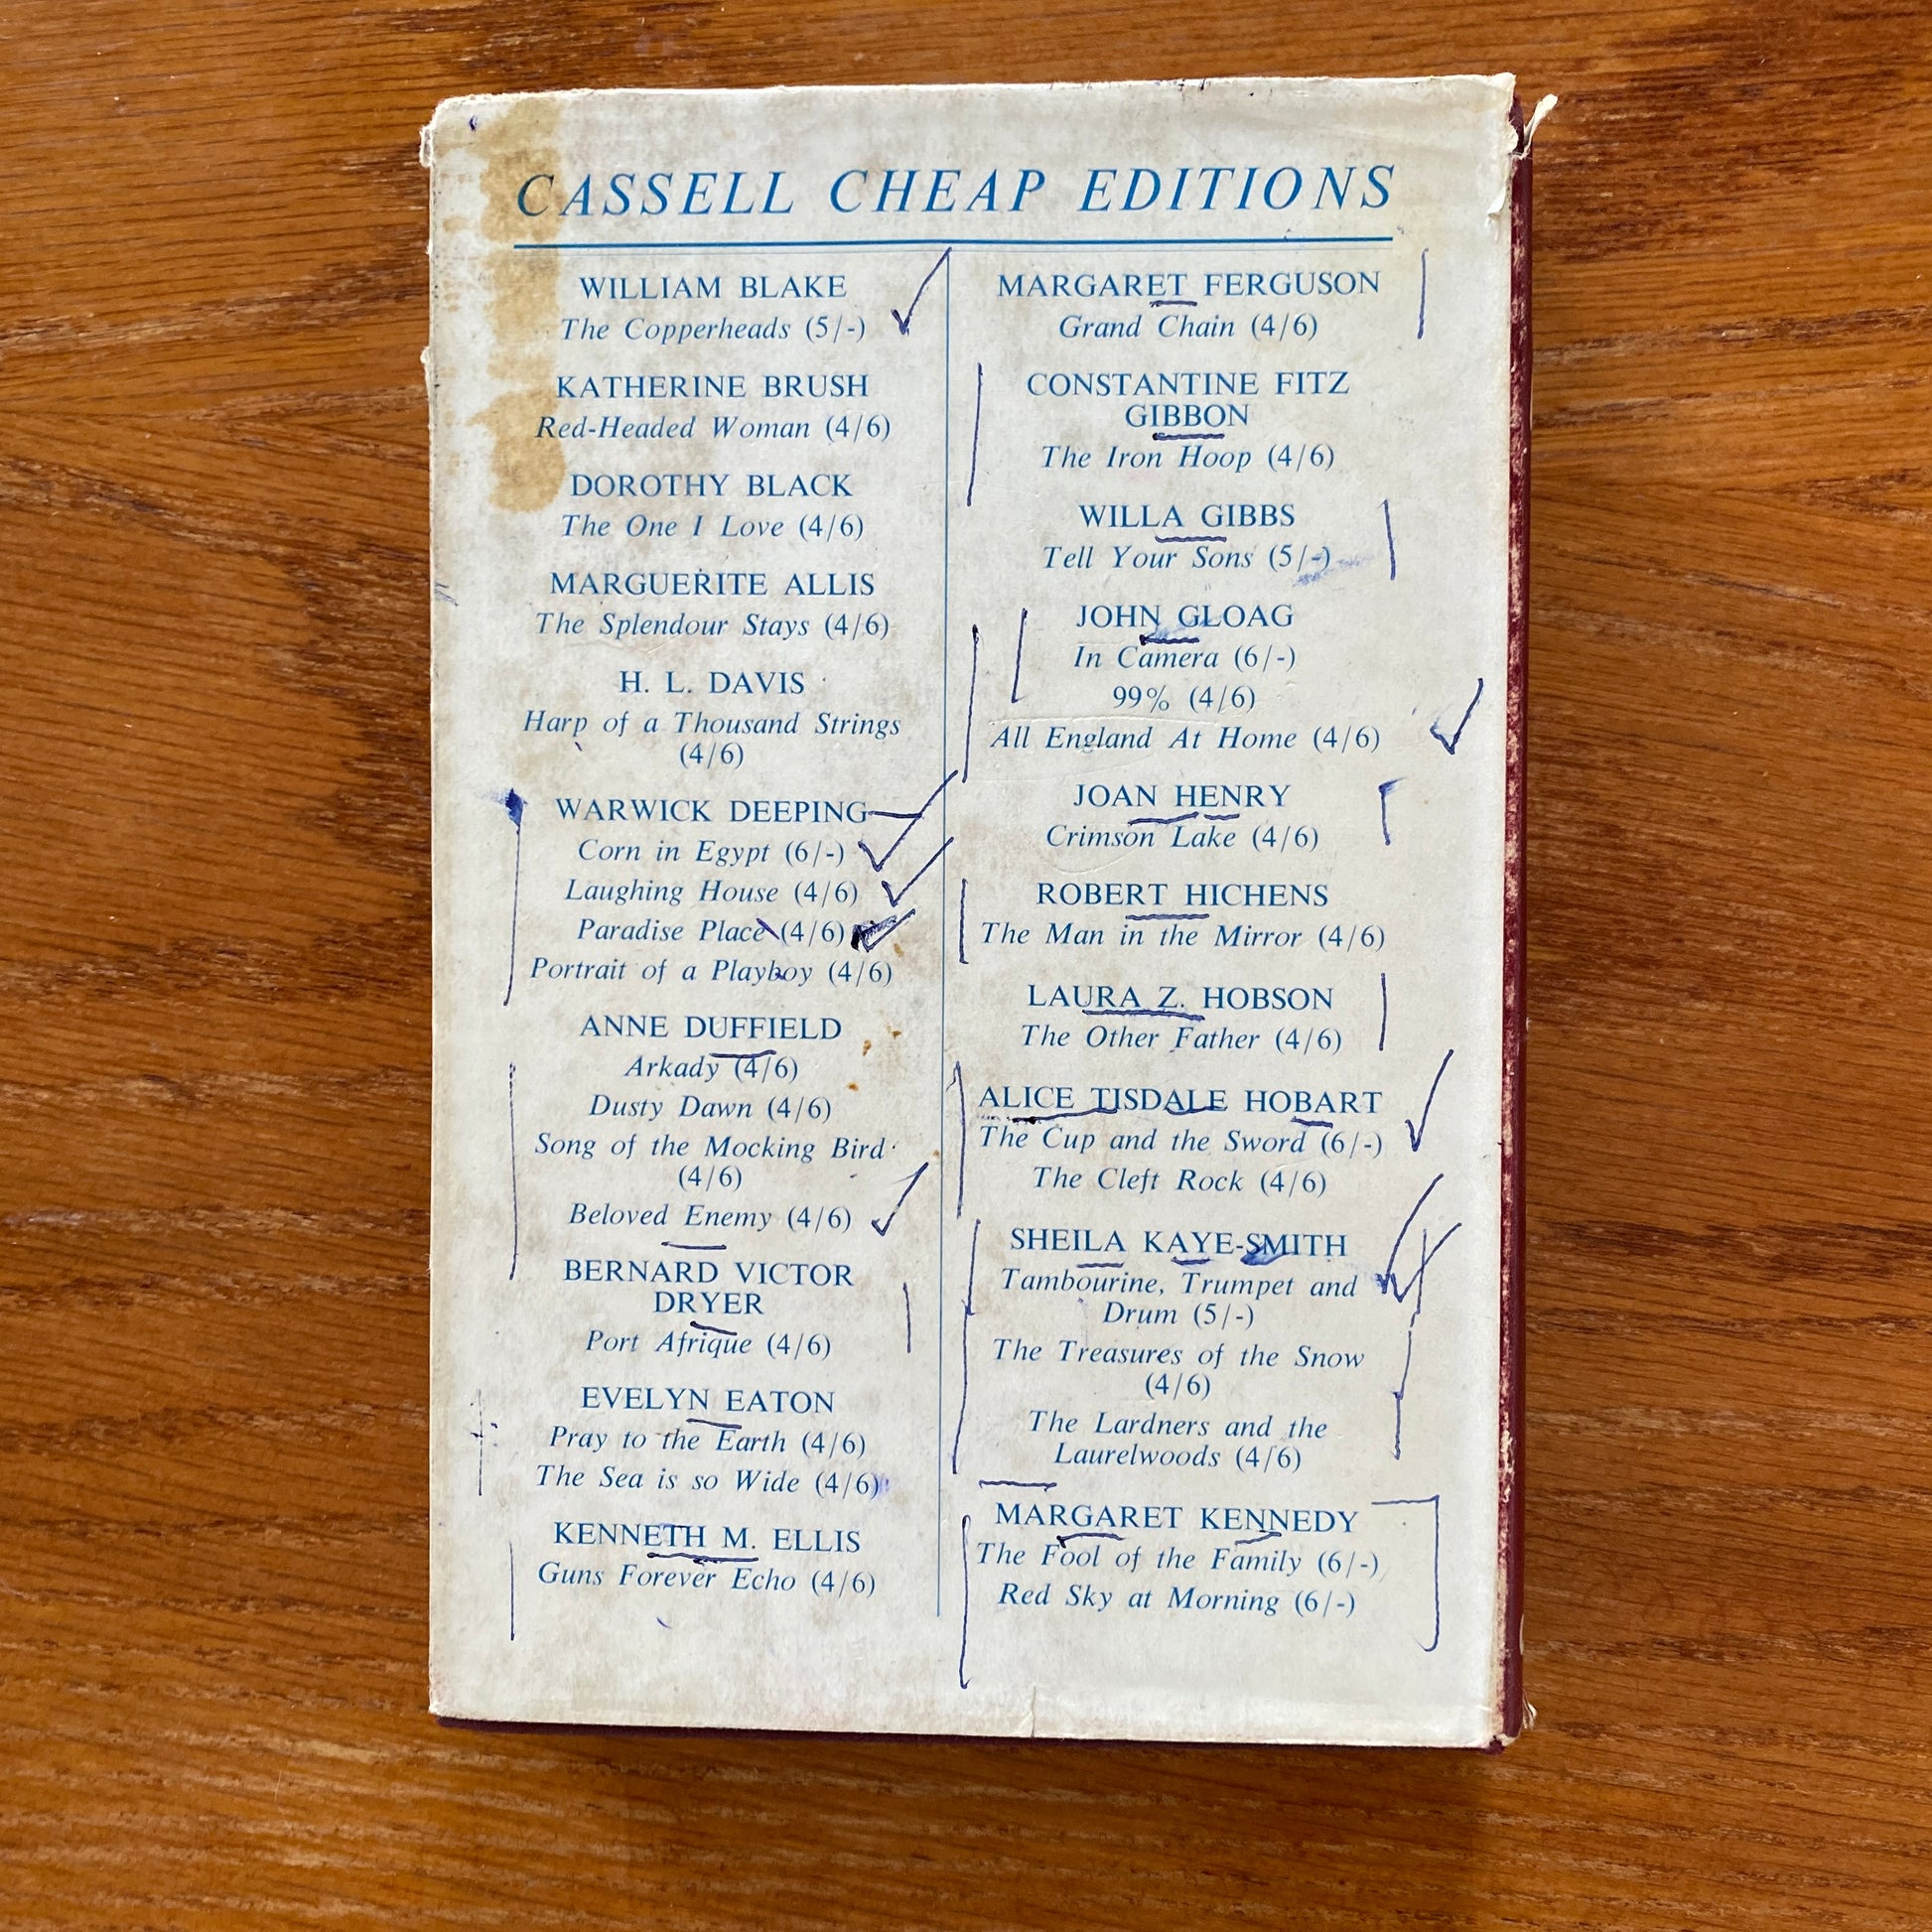 CASSELL CHEAP EDITIONS
WILLIAM BLAKE
The Copperheads (5/-)
KATHERINE BRUSH
Red-Headed Woman (4/6)
DOROTHY BLACK
The One I Love (4/6)
MARGUERITE ALLIS
The Splendour Stays (4/6)
H. L. DAVIS
Harp of a Thousand Strings
(4/6)
WARWICK DEEPING
Corn in Egypt (6/-)
Laughing House (4/6)
Paradise Place (4/6)
Portrait of a Playboy (4/6)
ANNE DUFFIELD
Arkady (4/6)
Dusty Dawn (4/6)
Song of the Mocking Bird
(4/6)
Beloved Enemy (4/6)
BERNARD VICTOR
DRYER
Port Afrique (4/6)
EVELYN EATON
Pray to the Earth (4/6)
The Sea is so Wide (4/6)
KENNETH M. ELLIS
Guns Forever Echo (4/6)
MARGARET FERGUSON
Grand Chain (4/6)
CONSTANTINE FITZ
GIBBON
The Iron Hoop (4/6)
WILLA GIBBS
Tell Your Sons (5/-)
JOHN GLOAG
In Camera (6/-)
99% (4/6)
All England At Home (4/6)
JOAN HENRY
Crimson Lake (4/6)
ROBERT HICHENS
The Man in the Mirror (4/6)
LAURA Z. HOBSON
The Other Father (4/6)
ALICE TISDALE HOBART
The Cup and the Sword (6/-)
The Cleft Rock (4/6)
SHEILA KAYE-SMITH
Tambourine, Trumpet and
Drum (5/-)
The Treasures of the Snow
(4/6)
The Lardners and the
Laurelwoods (4/6)
MARGARET KENNEDY
The Fool of the Family (6/-)
Red Sky at Morning (6/-)